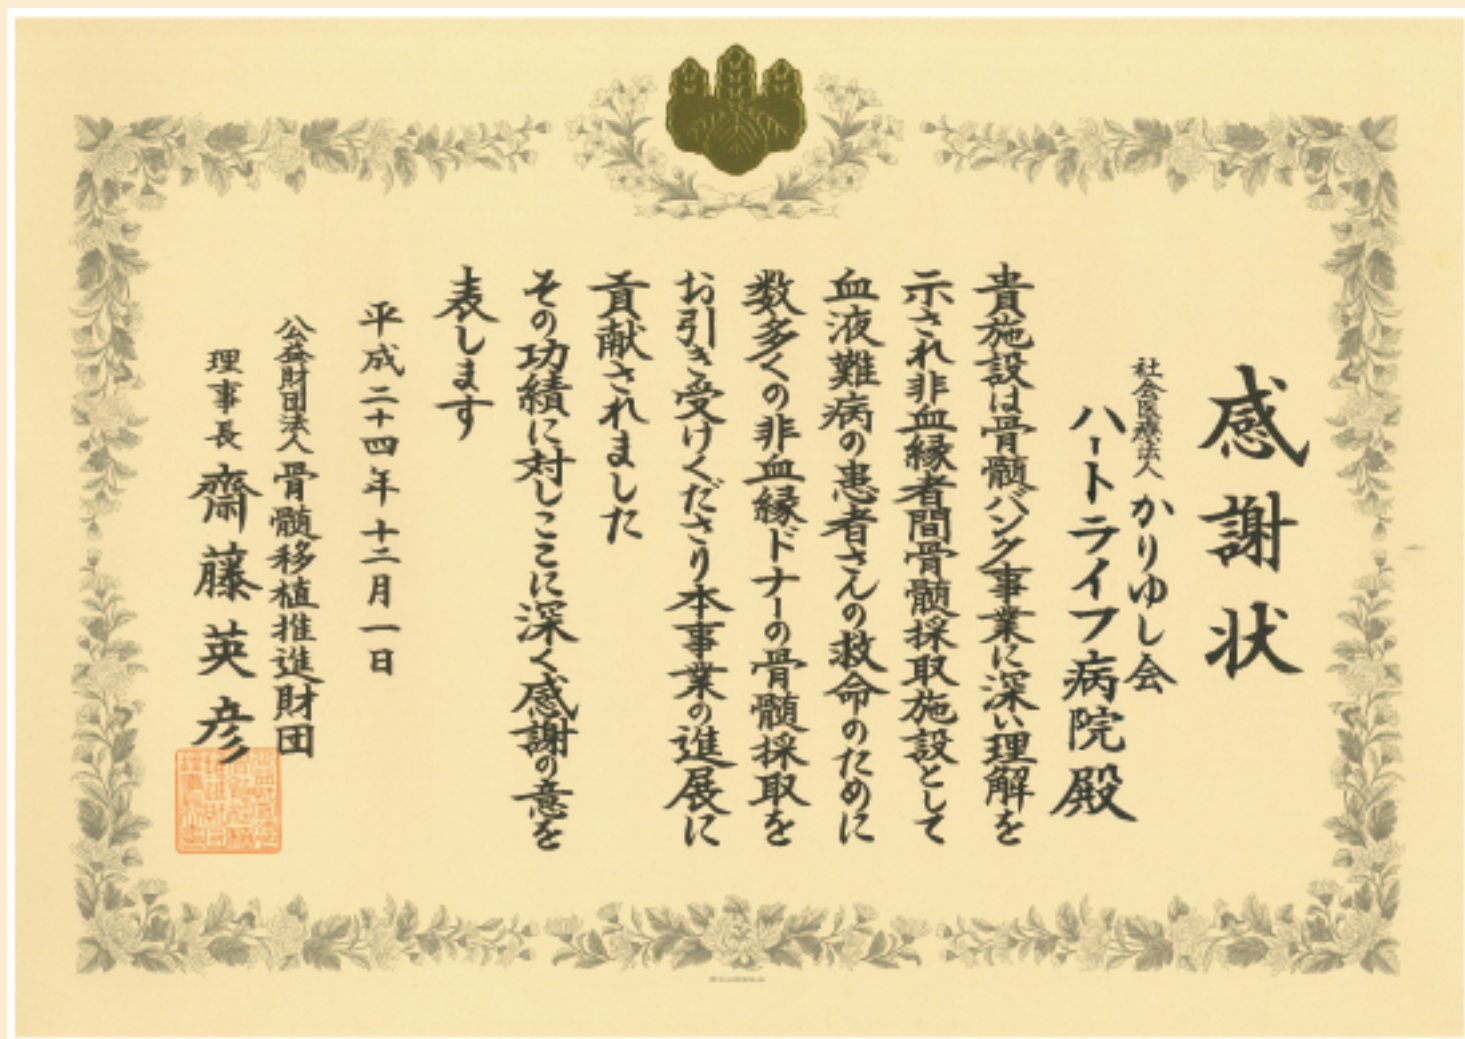 感謝状
社会医療法人 かりゆし会
ハートライフ病院殿
貴施設は骨髄バンク事業に深い理解を
示され非血縁者間骨髄採取施設として
血液難病の患者さんの救命のために
数多くの非血縁ドナーの骨髄採取を
お引き受けくださり本事業の進展に
貢献されました
その功績に対しここに深く感謝の意を
表します
平成二十四年十二月一日
公益財団法人 骨髄移植推進財団
理事長 齋藤英彦